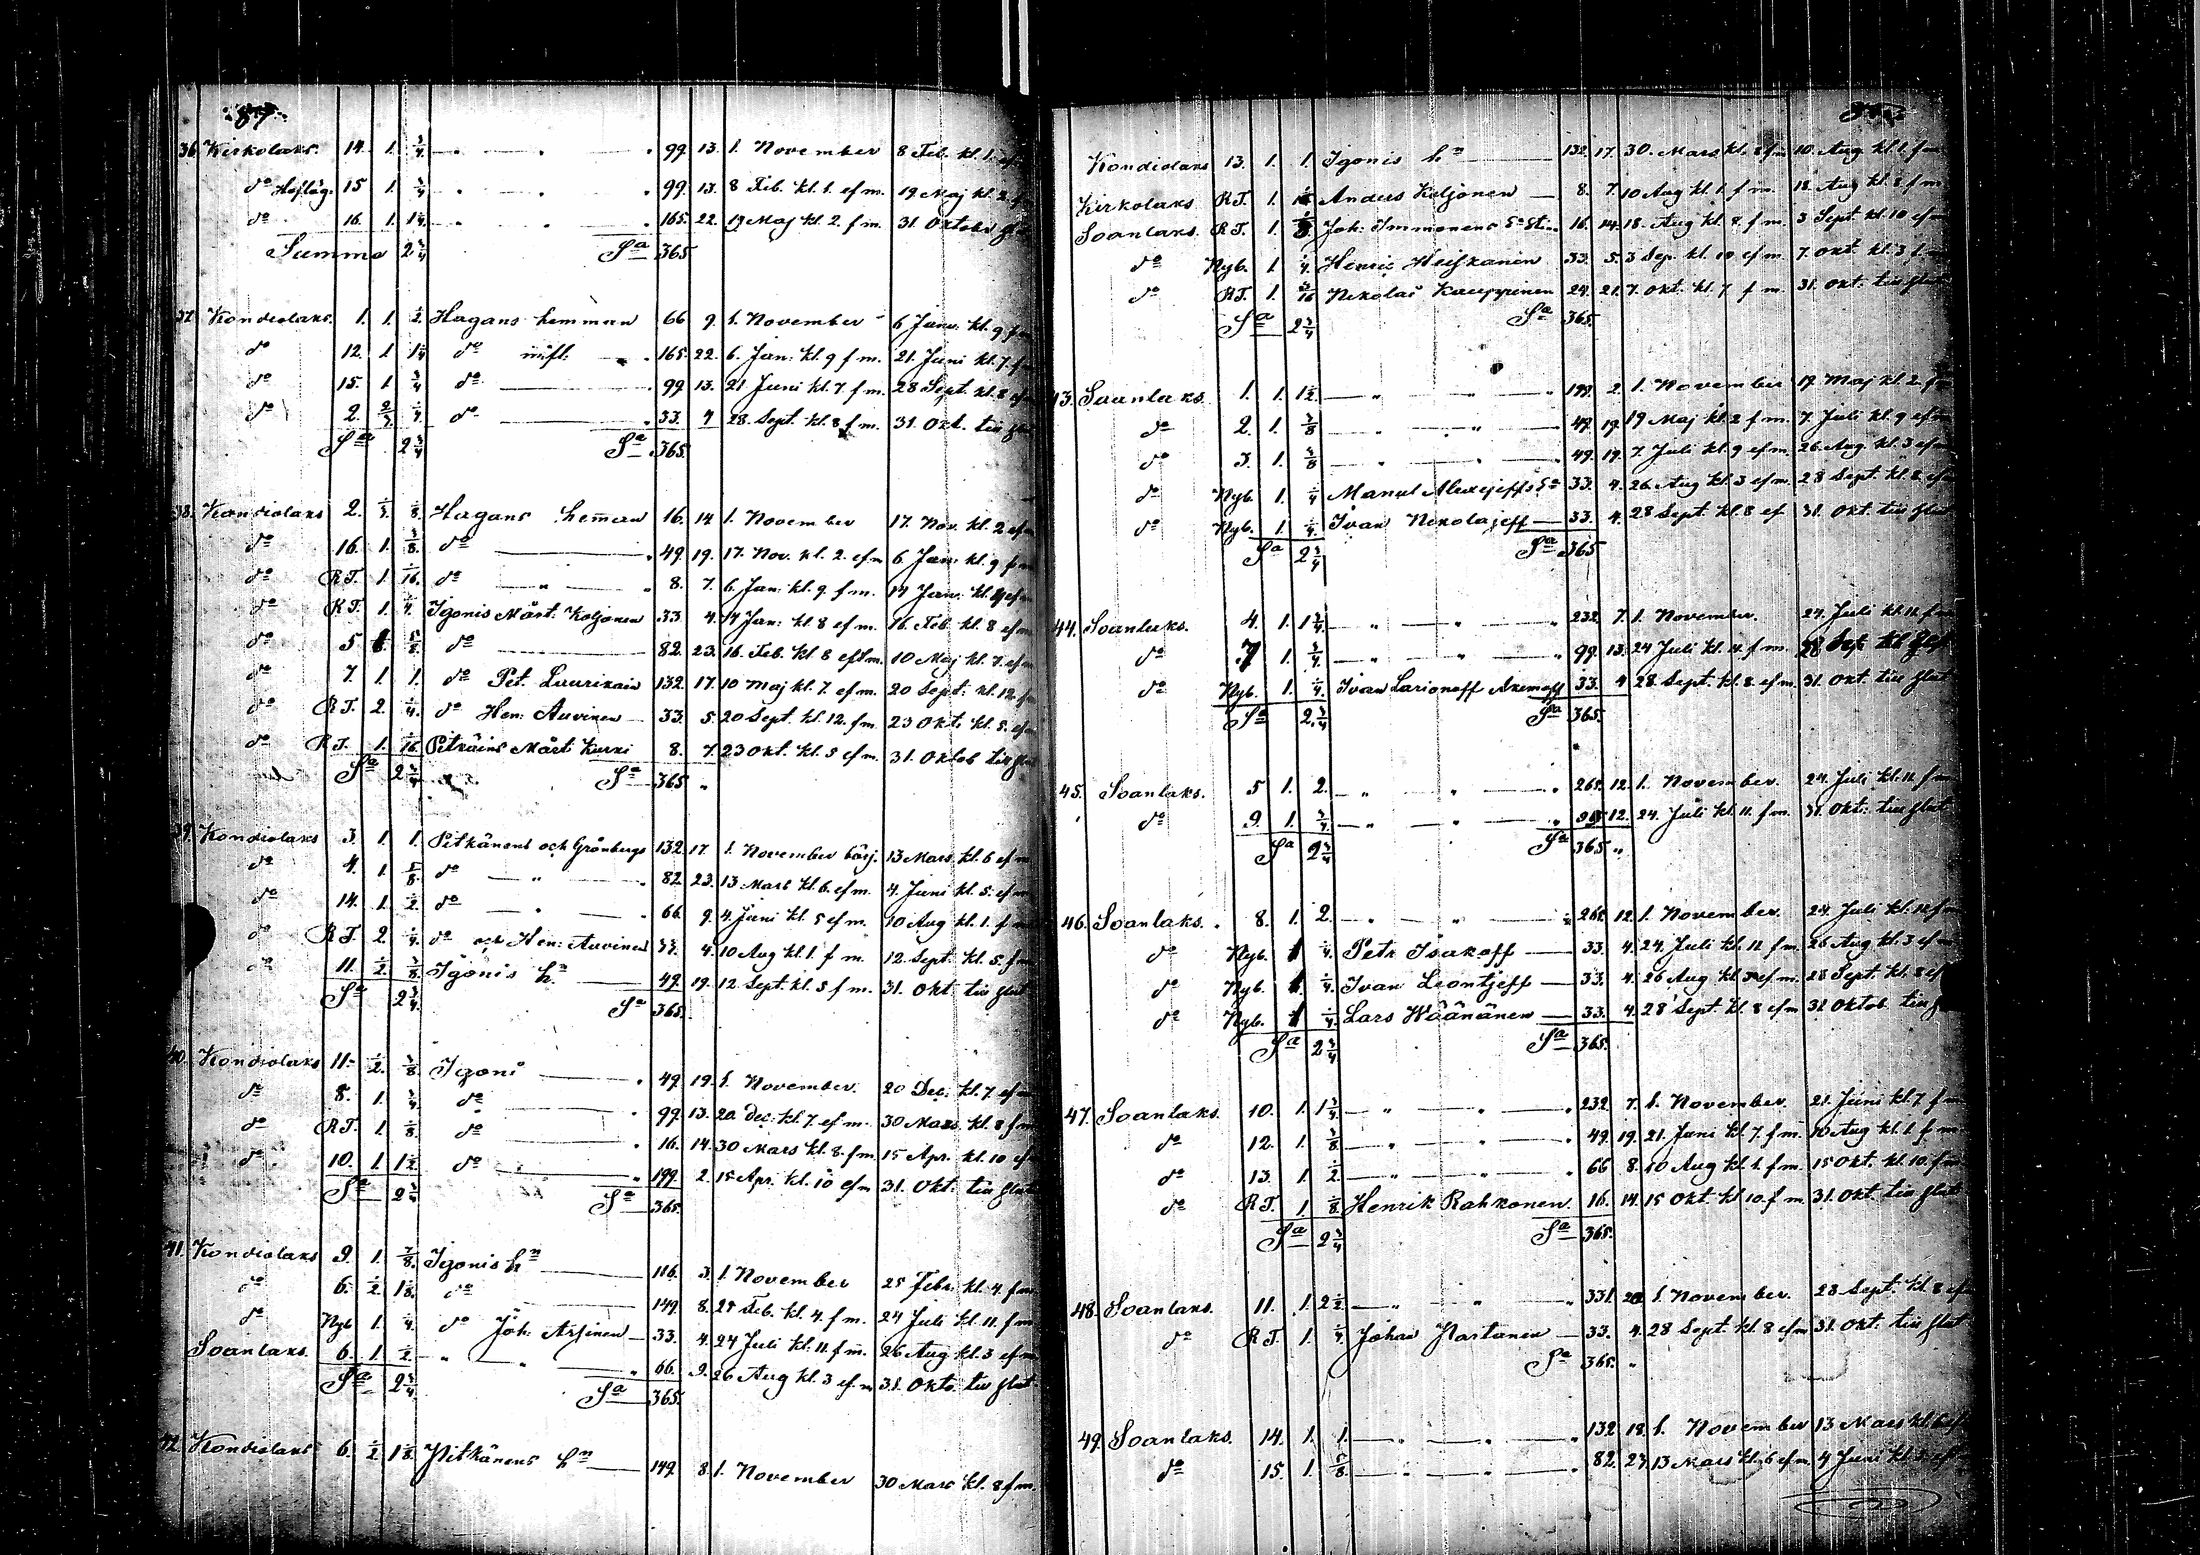 87.
36. Kirkolaks. 14. 1. 3/4. — " " " 99. 13. 1. November 8 Feb. kl. 1. ef
do Hofläg. 15 1. 3/4 " " " 99. 13. 8 Feb. kl. 1. ef m. 19 Maj kl. 2. f
do 16. 1. 1 1/4. " " " 165. 22. 19 Maj kl. 2. f m. 31. Oktober
Summa 2 3/4 Sa 365
37. Kondiolaks. 1. 1. 1/2. Hagans hemman 66 9. 1. November 6 Janu. kl. 9 f m
do 12. 1 1 1/4 do " 165. 22. 6. Jan: kl. 9 f m. 21. Juni kl. 7 f
do 15. 1 3/4 do — 99. 13. 21. Juni kl. 7 f m. 28 Sept. kl. 8 ef
do 2. 1/4 do — 33. 4 28. Sept. kl. 8 f m. 31. Okt. till slut
Sa 2 3/4 Sa 365.
38. Kondiolaks 2. 1/8. Hagans heman 16. 14. 1. November 17. Nov. kl. 2 ef m
do 16. 1. 3/8. do — 49. 19. 17. Nov. kl. 2. ef m 6 Jan: kl. 9 f m
do RT. 1. 1/16. do — " 8. 7. 6 Jan: kl. 9. f m. 14 Janu: kl. ef m
do RT. 1. 1/4. Igonis Mårt. Koljonen 33. 4. 14 Jan: kl 8 ef m. 16. Feb. kl. 8 ef m
do 5 5/8. do — 82. 23. 16. Feb. kl 8 ef m. 10 Maj kl. 7. ef m
do 7. 1 1. do Pet. Laurikain 132. 17. 10 Maj kl. 7. ef m. 20 Sept: kl. 12. f m
do RT. 2. 1/4. do Hen: Auvinen — 33. 5. 20 Sept. kl. 12. f m. 23 Okt. kl. 5. ef m
do RT. 1. 1/16. Petkäins Mårt Kurki 8. 7. 23 Okt. kl. 5 ef m. 31. Oktob till slut
Sa 2 3/4 Sa 365 "
39. Kondiolaks 3. 1 1. Pitkänens och Grönbergs 132. 17 1. November börj. 13 Mars kl. 6 ef m
do 4. 1. 5/8. do — " — 82. 23. 13 Mars kl. 6. ef m. 4. Juni kl. 5. ef m
do 14. 1. 1/2. do — " — 66. 9. 4. Juni kl. 5 ef m. 10 Aug kl. 1. f m
do RT. 2. 1/4. do och Hen: Auvinen 33. 4. 10 Aug kl. 1. f m. 12. Sept. kl. 5. f m
do 11. 1/2. 3/8. Igonis hn — 49. 19. 12 Sept. kl. 5 f m. 31. Okt. till slut
Sa 2 3/4. Sa 365.
40. Kondiolaks 11. 1/2. 3/8. Igoni — 49. 19. 1. November. 20 Dec. kl. 7. ef m
do 8. 1. 3/4. do — 99. 13. 20 Dec: kl. 7. ef m. 30 Mars. kl. 8 f m
do RT. 1. 1/8. do — 16. 14. 30 Mars kl. 8. f m. 15 Apr. kl. 10 ef m
do 10. 1. 1 1/2. do — 199 2. 15 Apr. kl. 10 ef m 31. Okt. till slut
Sa 2 3/4 Sa 365.
41. Kondiolaks 9. 1. 7/8. Igonis hn — 116. 3. 1. November 25 Febr. kl. 4. f m
do 6. 1/2. 1 1/8. do — 149. 8. 25 Feb. kl. 4. f m. 24 Juli kl. 11. f m
do Nyb 1. 1/4. do Joh: Assinen — 33. 4. 24 Juli kl. 11. f m. 26 Aug kl. 3 ef m
Soanlaks. 6. 1. 1/2. — " — " — 66. 9. 26 Aug kl. 3 ef m 31. Okto. till slut
Sa 2 3/4 Sa 365.
42. Kondiolaks 6. 1/2. 1 1/8. Pitkänens hn — 149. 8. 1. November 30 Mars kl. 8 f m.
Kondiolaks 13. 1. 1. Igonis hn — 132. 17. 30. Mars kl. 8 f m 10. Aug kl. 1. f m
Kirkolaks RT. 1. 1/16 Anders Koljonen — 8. 7. 10 Aug kl. 1. f m. 18. Aug kl. 8 f m
Soanlaks. RT. 1. 1/8 Joh. Immonens 16. 14. 18. Aug kl. 8. f m. 3 Sept. kl. 10 ef
do Nyb. 1 1/4. Henric Heiskanin 33. 5. 3 Sep. kl. 10 ef m. 7. Okt kl. 3 f
do RT. 1. 3/16 Nikolai Kauppinen 24. 21. 7. Okt. kl. 7 f m. 31. Okt: till slut
Sa 2 3/4 Sa 365.
43. Soanlaks. 1. 1. 1 1/2. — " " " 199. 2. 1. November 19. Maj kl. 2. f
do 2. 1. 3/8 — " " 49. 19. 19 Maj kl. 2 f m. 7. Juli kl. 9 ef m
do 3. 1. 3/8 — " " 49. 19. 7. Juli kl. 9 ef m. 26. Aug. kl. 3 ef m
do Nyb. 1. 1/4 Manuel Alexejeffs 33. 4. 26. Aug kl. 3 ef m. 28 Sept. kl. 8. ef
do Nyb. 1. 1/4. Ivan Nikolajeff — 33. 4. 28 Sept. kl. 8 ef 31. Okt. till slut
Sa 2 3/4 Sa 365
44. Soanlaks. 4. 1. 1 3/4. — " — " — " 232. 7. 1. November. 24. Juli kl. 11. f m
do 7 1. 3/4. — " " " 99. 13. 24 Juli kl. f m. 28 Sep. kl 8 ef
do Nyb. 1. 1/4. Ivan Larionoff Akimoff 33. 4 28. Sept. kl. 8. ef m. 31. Okt. till slut
Sa 2. 3/4 Sa 365.
45. Soanlaks. 5 1. 2. — " " " 265. 12. 1. November. 24. Juli kl. 11. f m
do 9. 1. 3/4. — " " " 12. 24. Juli kl. 11. f m. 31. Okt: till slut
Sa 2 3/4 Sa 365 "
46. Soanlaks. 8. 1. 2. — " " 265. 12. 1. November. 24. Juli kl. 11. f m
do Nyb. 1 1/4. Petr Isakoff — 33. 4. 24. Juli kl. 11. f m. 26 Aug kl. 3 ef m
do Nyb. 1. 1/4. Ivan Leontjeff — 33. 4. 26 Aug kl. 3 ef m. 28 Sept. kl. 8 ef
do Nyb. 1 1/4. Lars Wäänänen — 33. 4. 28 Sept. kl. 8 ef m 31 Oktob. till
Sa 2 3/4 Sa 365.
47. Soanlaks. 10. 1. 1 3/4 — " — " — " 232 7. 1. November. 21. Juni kl. 7 f m
do 12. 1. 3/8 — " " " 49. 19. 21. Juni kl. 7. f m 10 Aug kl. 1. f m
do 13. 1 1/2. — " " " 66 8. 10 Aug kl. 1. f m. 15 Okt. kl. 10. f m
do RT. 1 1/8. Henrik Rahkonen. 16. 14. 15 Okt. kl 10. f m 31. Okt. till slut
Sa 2 3/4 Sa 365.
48. Soanlaks. 11. 1. 2 1/2. — " " " 331. 20. 1. November. 28 Sept. kl. 8 ef
do RT. 1. 1/4. Johan Partanen — 33. 4. 28 Sept. kl. 8 ef m 31. Okt. till slut
Sa 365. "
49. Soanlaks. 14. 1. 1. — " — " — " 132. 18. 1. November 13 Mars kl. 6
do 15. 1. 5/8. — " " " 82. 23. 13 Mars kl. 6 ef m 4 Juni kl. 5 ef